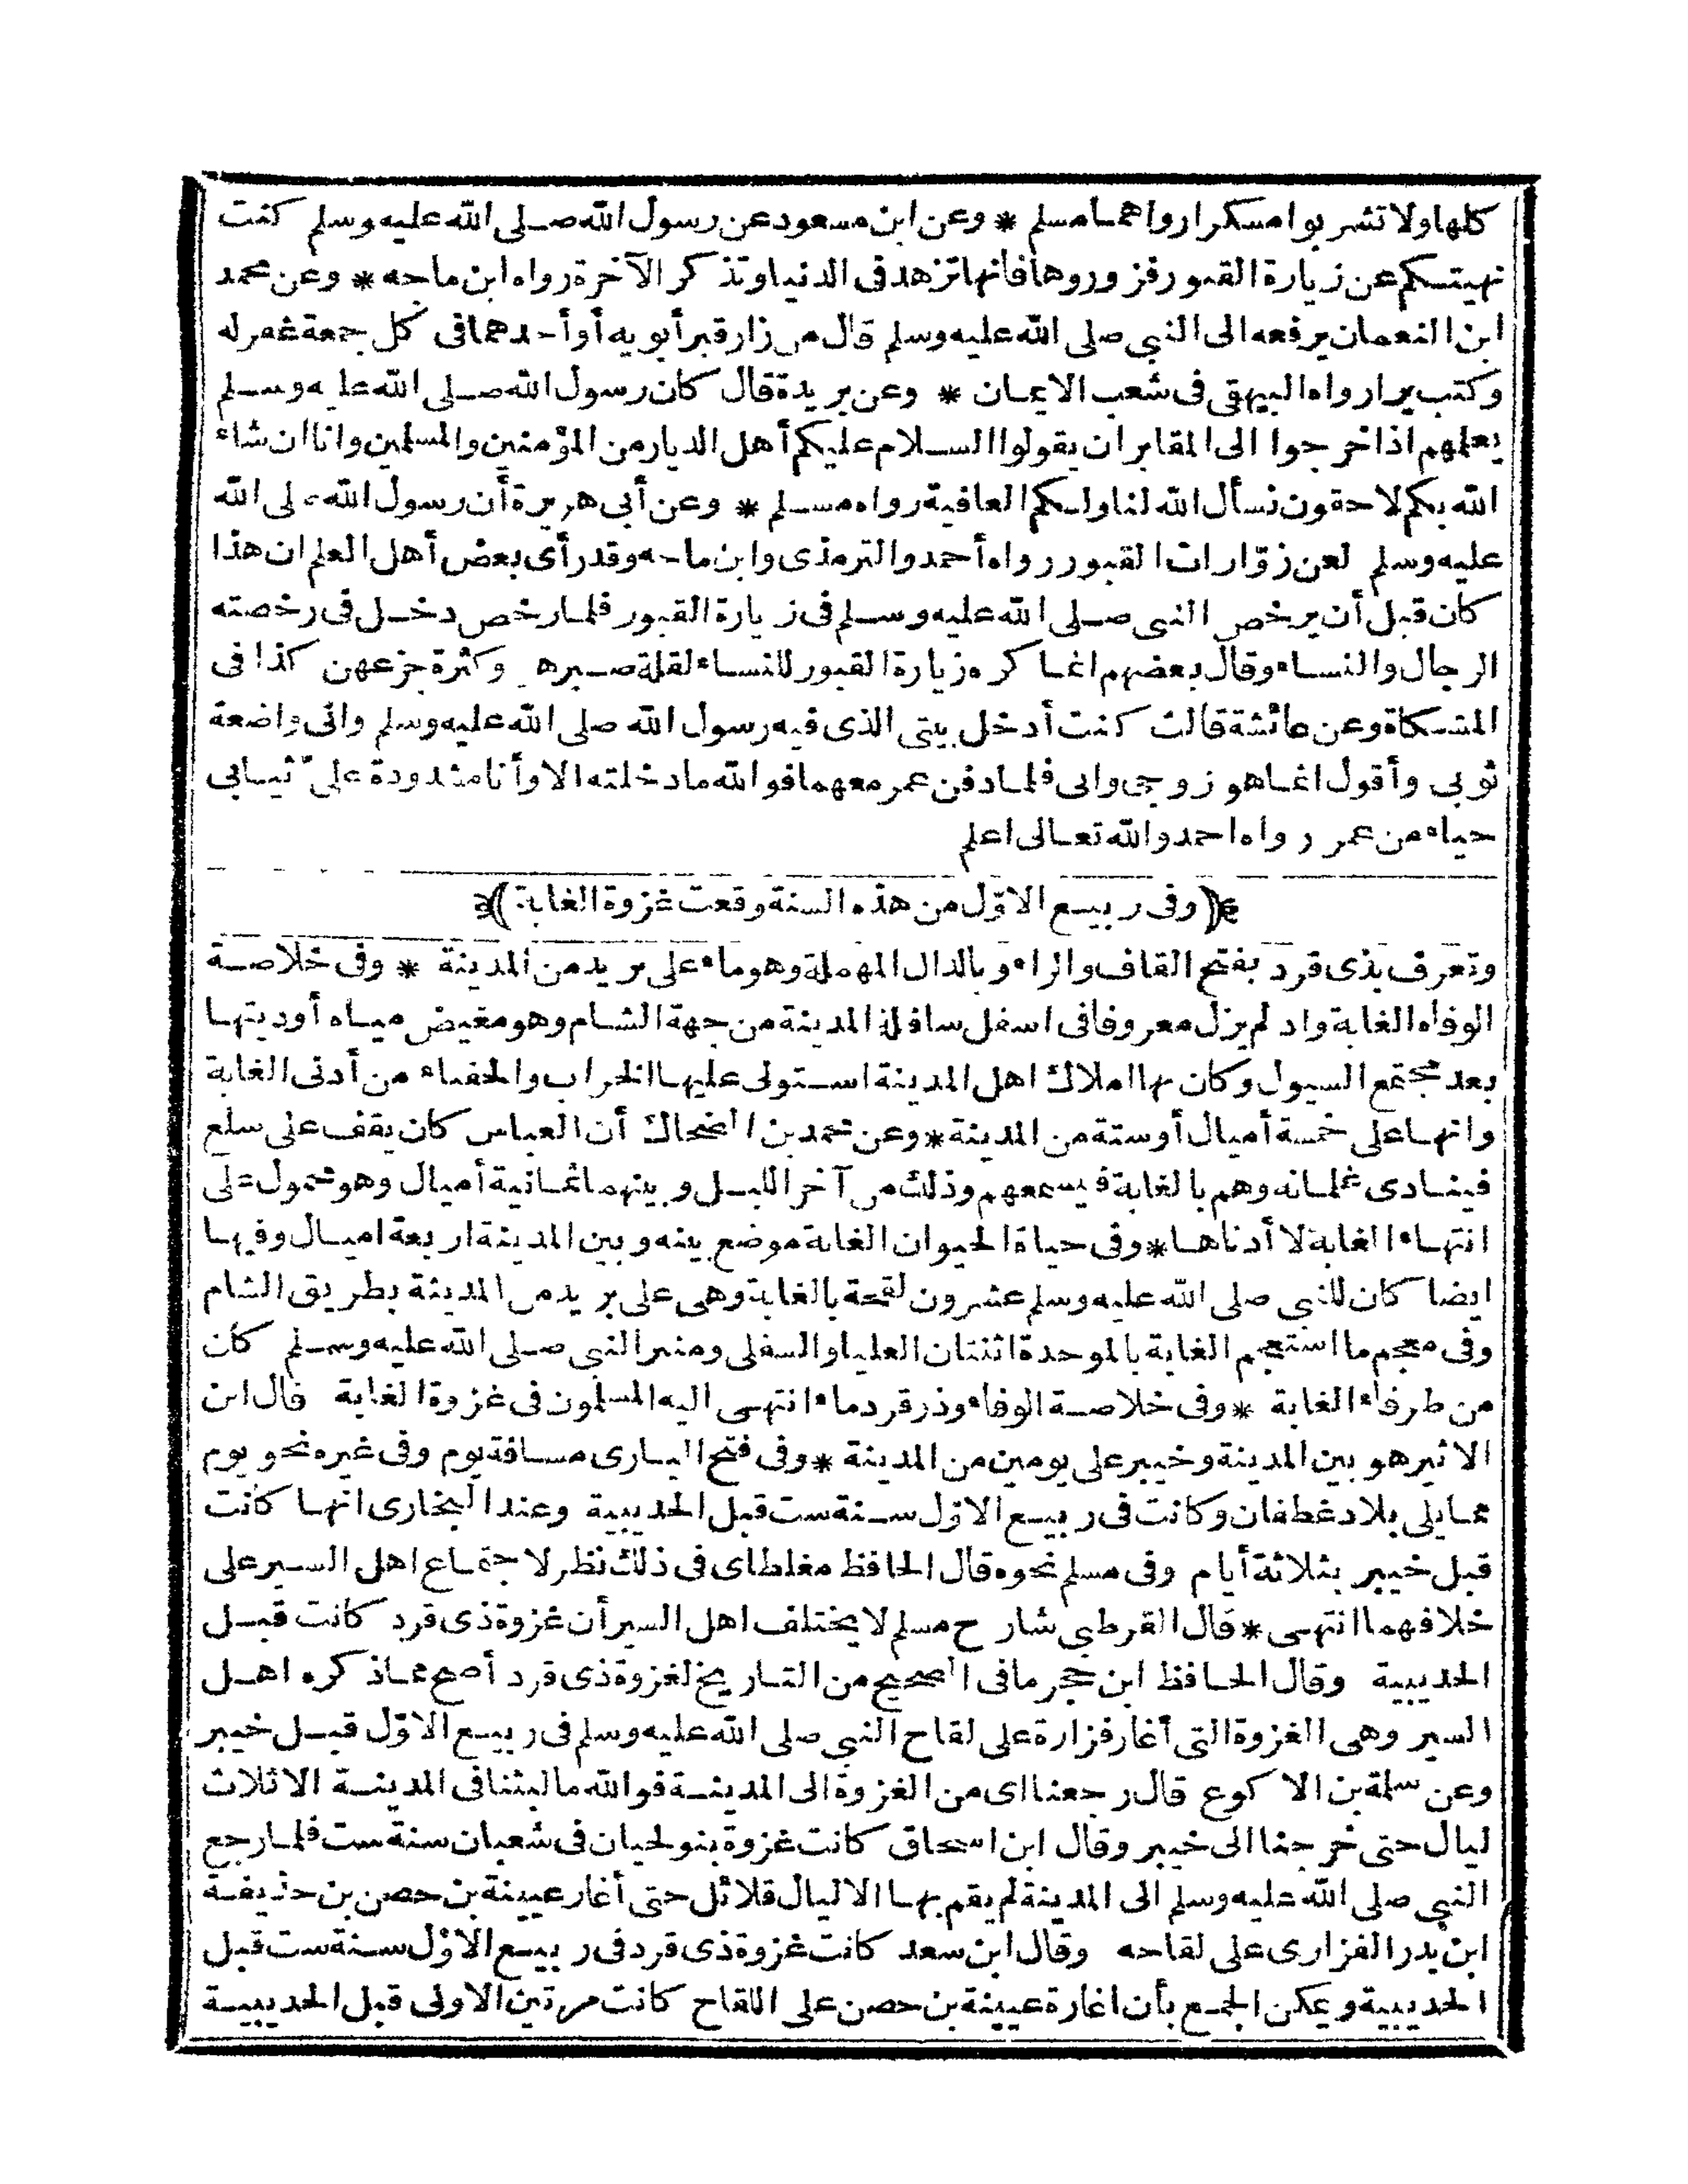 كلها ولا تشربوا مسكرا رواهما مسلم * وعن ابن مسعود عن رسول الله صلى الله عليه وسلم كنت
نهيتكم عن زيارة القبور فزوروها فانها تزهد فى الدنيا وتذكر الآخرة رواه ابن ماجه * وعن محمد
ابن النعمان يرفعه الى النبي صلى الله عليه وسلم قال من زار قبر أبويه أو أحدهما فى كل جمعة غفر له
وكتب برا رواه البيهقى فى شعب الايمان * وعن بريدة قال كان رسول الله صلى الله عليه وسلم
يعلمهم اذا خرجوا الى المقابر ان يقولوا السلام عليكم أهل الديار من المؤمنين والمسلمين وانا ان شاء
الله بكم لاحقون نسأل الله لنا ولكم العافية رواه مسلم * وعن أبى هريرة أن رسول الله صلى الله
عليه وسلم لعن زوّارات القبور رواه أحمد والترمذى وابن ماجه وقد رأى بعض أهل العلم ان هذا
كان قبل أن يرخص النبى صلى الله عليه وسلم فى زيارة القبور فلما رخص دخل فى رخصته
الرجال والنساء وقال بعضهم انما كره زيارة القبور للنساء لقلة صبرهن وكثرة جزعهن كذا فى
المشكاة وعن عائشة قالت كنت أدخل بيتى الذى فيه رسول الله صلى الله عليه وسلم وانى واضعة
ثوبى وأقول انما هو زوجى وابى فلما دفن عمر معهما فوالله ما دخلته الا وأنا مشدودة علىّ ثيابى
حياء من عمر رواه احمد والله تعالى اعلم
﴿(وفى ربيع الاوّل من هذه السنة وقعت غزوة الغابة)﴾
وتعرف بذى قرد بفتح القاف والراء وبالدال المهملة وهو ماء على بريد من المدينة * وفى خلاصة
الوفاء الغابة واد لم يزل معروفا فى اسفل سافلة المدينة من جهة الشام وهو مغيض مياه أوديتها
بعد مجتمع السيول وكان بها املاك اهل المدينة استولى عليها الخراب والحفياء من أدنى الغابة
وانها على خمسة أميال أو ستة من المدينة * وعن محمد بن الضحاك أن العباس كان يقف على سلع
فينادى غلمانه وهم بالغابة فيسمعهم وذلك من آخر الليل وبينهما ثمانية أميال وهو محمول على
انتهاء الغابة لا أدناها * وفى حياة الحيوان الغابة موضع بينه وبين المدينة اربعة اميال وفيها
ايضا كان للنبى صلى الله عليه وسلم عشرون لقحة بالغابة وهى على بريد من المدينة بطريق الشام
وفى معجم ما استعجم الغابة بالموحدة اثنتان العليا والسفلى ومنبر النبي صلى الله عليه وسلم كان
من طرفاء الغابة * وفى خلاصة الوفاء وذو قرد ماء انتهى اليه المسلمون فى غزوة الغابة قال ابن
الاثير هو بين المدينة وخيبر على يومين من المدينة * وفى فتح البارى مسافة يوم وفى غيره نحو يوم
مما يلى بلاد غطفان وكانت فى ربيع الاوّل سنة ست قبل الحديبية وعند البخارى انها كانت
قبل خيبر بثلاثة أيام وفى مسلم نحوه قال الحافظ مغلطاى فى ذلك نظر لاجتماع اهل السير على
خلافهما انتهى * قال القرطبي شارح مسلم لا يختلف اهل السير أن غزوة ذى قرد كانت قبل
الحديبية وقال الحافظ ابن حجر ما فى الصحيح من التاريخ لغزوة ذى قرد أصح مما ذكره اهل
السير وهى الغزوة التى أغار فزارة على لقاح النبي صلى الله عليه وسلم فى ربيع الاوّل قبل خيبر
وعن سلمة بن الاكوع قال رجعنا اى من الغزوة الى المدينة فوالله ما لبثنا فى المدينة الا ثلاث
ليال حتى خرجنا الى خيبر وقال ابن اسحاق كانت غزوة بنو لحيان فى شعبان سنة ست فلما رجع
النبي صلى الله عليه وسلم الى المدينة لم يقم بها الا ليال قلائل حتى أغار عيينة بن حصن بن حذيفة
ابن بدر الفزارى على لقاحه وقال ابن سعد كانت غزوة ذى قرد فى ربيع الاوّل سنة ست قبل
الحديبية ويمكن الجمع بأن اغارة عيينة بن حصن على اللقاح كانت مرتين الاولى قبل الحديبية